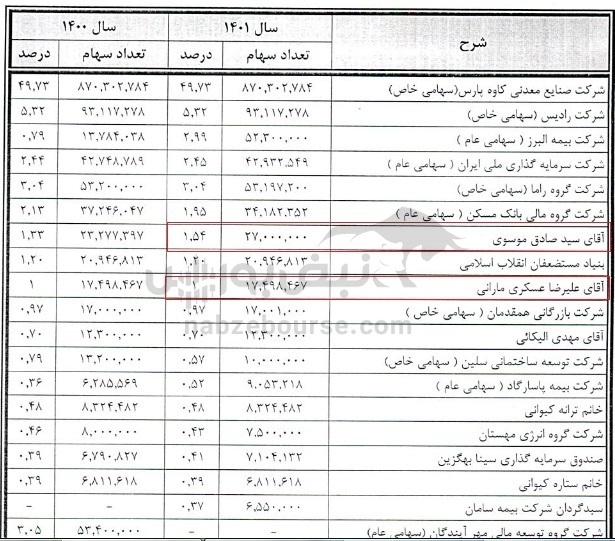 شرح سال ۱۴۰۱ سال ۱۴۰۰
تعداد سهام درصد تعداد سهام درصد
شرکت صنایع معدنی کاوه پارس(سهامی خاص) ۸۷۰,۳۰۲,۷۸۴ ۴۹,۷۳ ۸۷۰,۳۰۲,۷۸۴ ۴۹,۷۳
شرکت رادیس (سهامی خاص) ۹۳,۱۱۷,۲۷۸ ۵,۳۲ ۹۳,۱۱۷,۲۷۸ ۵,۳۲
شرکت بیمه البرز ( سهامی عام ) ۵۲,۳۰۰,۰۰۰ ۲,۹۹ ۱۳,۷۸۴,۰۳۸ ۰,۷۹
شرکت سرمایه گذاری ملی ایران ( سهامی عام ) ۴۲,۹۳۲,۵۴۹ ۲,۴۵ ۴۲,۷۴۸,۷۸۹ ۲,۴۴
شرکت گروه راما (سهامی خاص) ۵۳,۱۹۷,۲۰۰ ۳,۰۴ ۵۳,۲۰۰,۰۰۰ ۳,۰۴
شرکت گروه مالی بانک مسکن ( سهامی عام ) ۳۴,۱۸۲,۳۵۲ ۱,۹۵ ۳۷,۲۴۶,۰۴۷ ۲,۱۳
آقای سید صادق موسوی ۲۷,۰۰۰,۰۰۰ ۱,۵۴ ۲۳,۲۷۷,۳۹۷ ۱,۳۳
بنیاد مستضعفان انقلاب اسلامی ۲۰,۹۴۶,۸۱۳ ۱,۲۰ ۲۰,۹۴۶,۸۱۳ ۱,۲۰
آقای علیرضا عسکری مارانی ۱۷,۴۹۸,۴۶۷ ۱ ۱۷,۴۹۸,۴۶۷ ۱
شرکت بازرگانی همقدمان ( سهامی خاص ) ۱۷,۰۰۱,۰۰۰ ۰,۹۷ ۱۷,۰۰۰,۰۰۰ ۰,۹۷
آقای مهدی الیکائی ۱۲,۳۰۰,۰۰۰ ۰,۷۰ ۱۲,۳۰۰,۰۰۰ ۰,۷۰
شرکت توسعه ساختمانی سلین ( سهامی خاص) ۱۰,۰۰۰,۰۰۰ ۰,۵۷ ۱۳,۲۰۰,۰۰۰ ۰,۷۹
شرکت بیمه پاسارگاد ( سهامی عام ) ۹,۰۵۳,۲۱۸ ۰,۵۲ ۶,۲۸۵,۵۶۹ ۰,۳۶
خانم ترانه کیوانی ۸,۳۲۴,۴۸۲ ۰,۴۸ ۸,۳۲۴,۴۸۲ ۰,۴۸
شرکت گروه انرژی مهستان ۷,۵۰۰,۰۰۰ ۰,۴۳ ۸,۰۰۰,۰۰۰ ۰,۴۶
صندوق سرمایه گذاری سینا بهگزین ۷,۱۰۴,۱۳۲ ۰,۴۱ ۶,۷۹۰,۸۲۷ ۰,۳۹
خانم ستاره کیوانی ۶,۸۱۱,۶۱۸ ۰,۳۹ ۶,۸۱۱,۶۱۸ ۰,۳۹
سبدگردان شرکت بیمه سامان ۶,۵۵۰,۰۰۰ ۰,۳۷ - -
شرکت گروه توسعه مالی مهر آیندگان (سهامی عام) - - ۵۳,۴۰۰,۰۰۰ ۳,۰۵
نبض بورس
nabzebourse.com